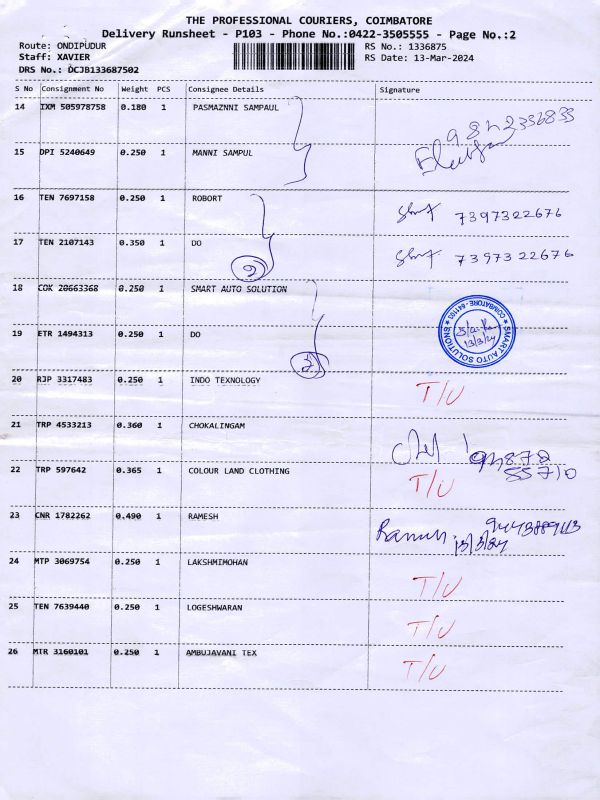 THE PROFESSIONAL COURIERS, COIMBATORE
Delivery Runsheet - P103 - Phone No.:0422-3505555 - Page No.:2
Route: ONDIPUDUR RS No.: 1336875
Staff: XAVIER RS Date: 13-Mar-2024
DRS No.: DCJB133687502
S No Consignment No Weight PCS Consignee Details Signature
14 IXM 505978758 0.180 1 PASMAZNNI SAMPAUL 9842336833
15 DPI 5240649 0.250 1 MANNI SAMPUL
16 TEN 7697158 0.250 1 ROBORT 7397322676
17 TEN 2107143 0.350 1 DO 7397322676
2
18 COK 20663368 0.250 1 SMART AUTO SOLUTION
SMART AUTO SOLUTION ★ COIMBATORE - 641103 ★
13/3/24
19 ETR 1494313 0.250 1 DO
2
20 RJP 3317483 0.250 1 INDO TEXNOLOGY T/U
21 TRP 4533213 0.360 1 CHOKALINGAM
94872
55710
22 TRP 597642 0.365 1 COLOUR LAND CLOTHING T/U
23 CNR 1782262 0.490 1 RAMESH Ramesh
13/3/24
24 MTP 3069754 0.250 1 LAKSHMIMOHAN T/U
25 TEN 7639440 0.250 1 LOGESHWARAN T/U
26 MTR 3160101 0.250 1 AMBUJAVANI TEX T/U